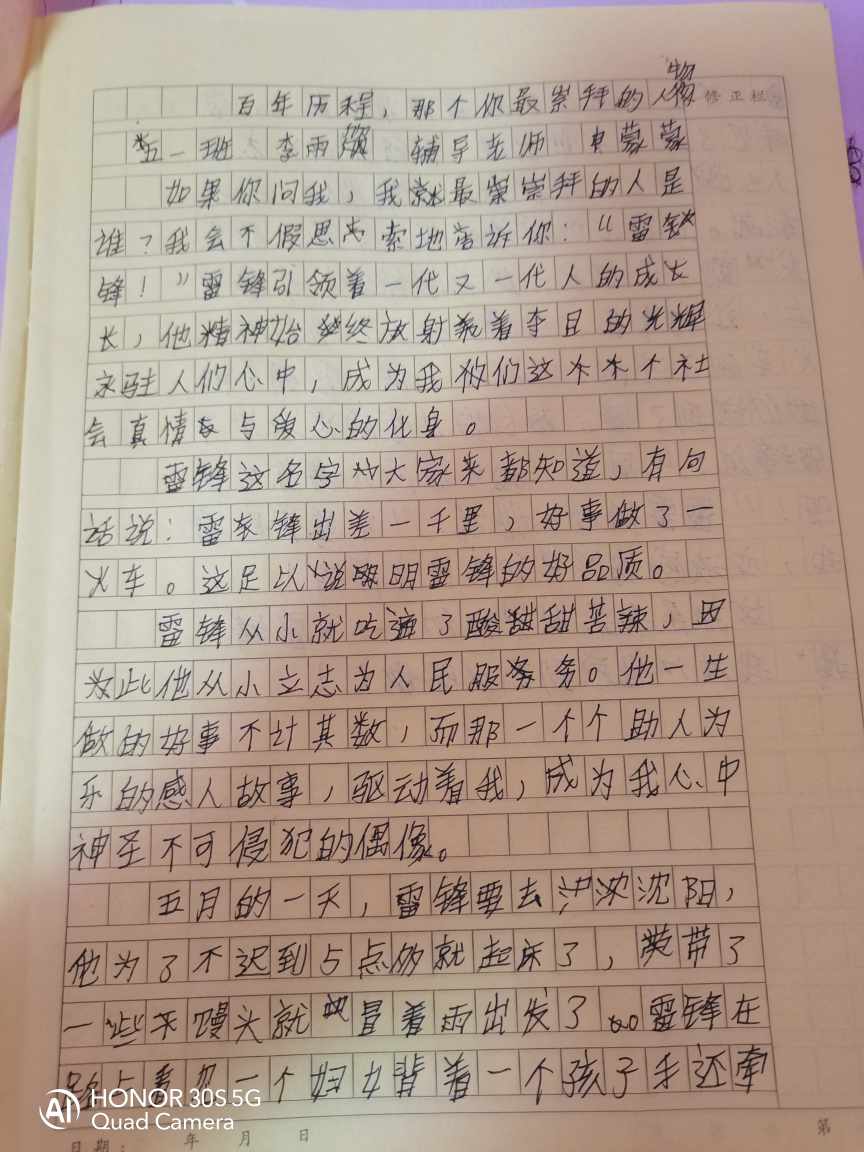 百年历程，那个你最崇拜的人物
修正栏
五一班 李雨 辅导老师 史蒙蒙
如果你问我，我就最崇拜的人是
谁？我会不假思索地告诉你：“雷
锋！”雷锋引领着一代又一代人的成
长，他精神始终放射着夺目的光辉
永驻人们心中，成为我们这个社
会真情与爱心的化身。
雷锋这名字大家都知道，有句
话说：雷锋出差一千里，好事做了一
火车。这足以说明雷锋的好品质。
雷锋从小就吃遍了酸甜苦辣，因
为此他从小立志为人民服务。他一生
做的好事不计其数，而那一个个助人为
乐的感人故事，驱动着我，成为我心中
神圣不可侵犯的偶像。
五月的一天，雷锋要去沈阳，
他为了不迟到5点就起床了，带了
一些馒头就冒着雨出发了。雷锋在
路上看见一个妇女背着一个孩子手还牵
日期： 年 月 日
第
AI HONOR 30S 5G
Quad Camera